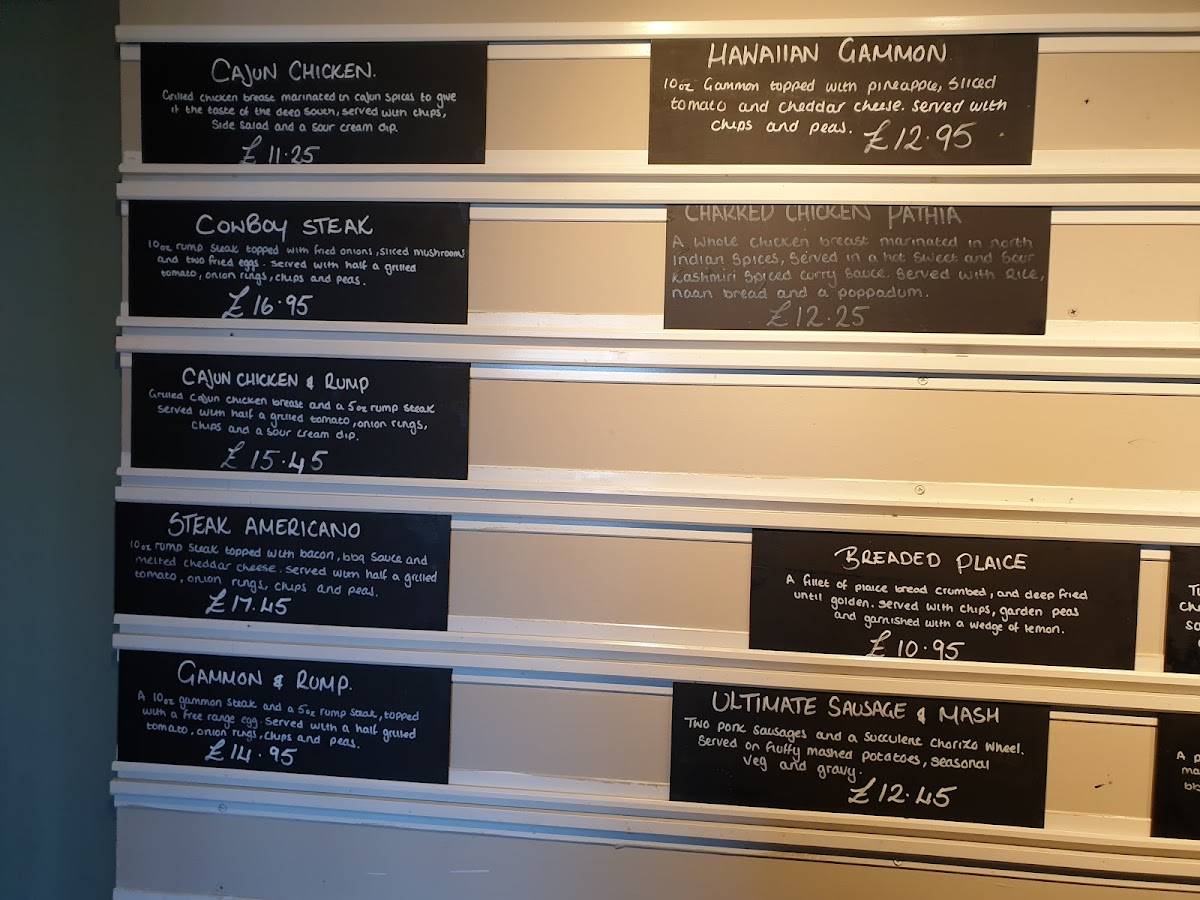 CAJUN CHICKEN.
Grilled chicken breast marinated in cajun spices to give
it the taste of the deep south, served with chips,
side salad and a sour cream dip.
£11.25
HAWAIIAN GAMMON
10oz Gammon topped with pineapple, sliced
tomato and cheddar cheese. served with
chips and peas. £12.95
COWBOY STEAK
10oz rump steak topped with fried onions, sliced mushrooms
and two fried eggs. served with half a grilled
tomato, onion rings, chips and peas.
£16.95
CHARRED CHICKEN PATHIA
A whole chicken breast marinated in north
Indian spices, served in a hot sweet and sour
Kashmiri spiced curry sauce. Served with Rice,
naan bread and a poppadum.
£12.25
CAJUN CHICKEN & RUMP
Grilled cajun chicken breast and a 5oz rump steak
served with half a grilled tomato, onion rings,
chips and a sour cream dip.
£15.45
STEAK AMERICANO
10oz rump steak topped with bacon, bbq sauce and
melted cheddar cheese. served with half a grilled
tomato, onion rings, chips and peas.
£17.45
BREADED PLAICE
A fillet of plaice bread crumbed, and deep fried
until golden. served with chips, garden peas
and garnished with a wedge of lemon.
£10.95
GAMMON & RUMP.
A 10oz gammon steak and a 5oz rump steak, topped
with a free range egg. served with a half grilled
tomato, onion rings, chips and peas.
£14.95
ULTIMATE SAUSAGE & MASH
Two pork sausages and a succulent chorizo wheel.
Served on fluffy mashed potatoes, seasonal
veg and gravy.
£12.45